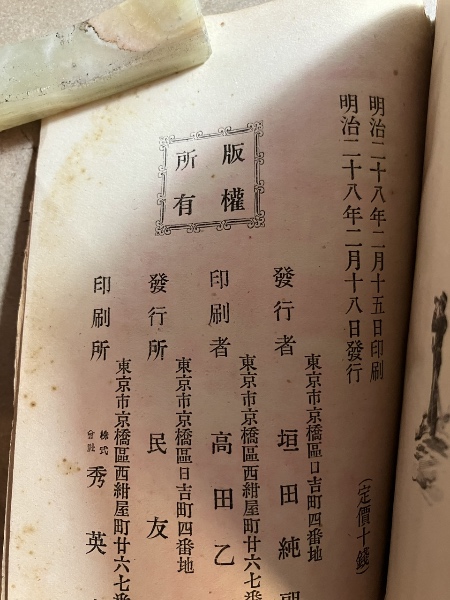 明治二十八年二月十五日印刷
明治二十八年二月十八日發行
(定價十錢)
版權
所有
東京市京橋區日吉町四番地
發行者 垣田純
東京市京橋區西紺屋町廿六七番
印刷者 高田乙
東京市京橋區日吉町四番地
發行所 民友
東京市京橋區西紺屋町廿六七番
印刷所 株式會社 秀英